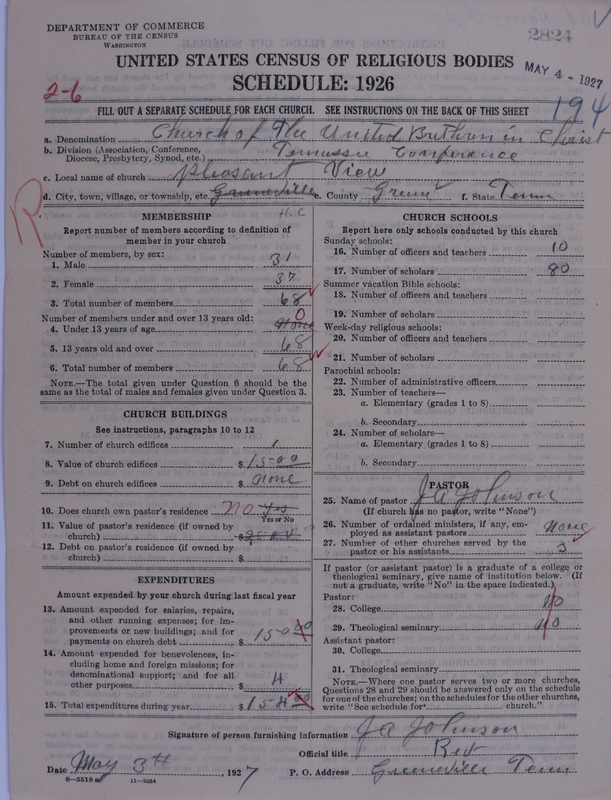 DEPARTMENT OF COMMERCE
BUREAU OF THE CENSUS
WASHINGTON
2824
UNITED STATES CENSUS OF RELIGIOUS BODIES
MAY 4 - 1927
SCHEDULE: 1926
2-6
194
FILL OUT A SEPARATE SCHEDULE FOR EACH CHURCH. SEE INSTRUCTIONS ON THE BACK OF THIS SHEET
a. Denomination Church of The United Brethren in Christ
b. Division (Association, Conference, Diocese, Presbytery, Synod, etc.) Tennessee Conference
c. Local name of church Pleasant View
d. City, town, village, or township, etc. Greeneville e. County Greene f. State Tenn
R
MEMBERSHIP
Report number of members according to definition of
member in your church
Number of members, by sex:
1. Male 31
2. Female 37
3. Total number of members 68
Number of members under and over 13 years old: 0
4. Under 13 years of age none
5. 13 years old and over 68
6. Total number of members 68
NOTE.—The total given under Question 6 should be
same as the total of males and females given under Question 3.
CHURCH BUILDINGS
See instructions, paragraphs 10 to 12
7. Number of church edifices 1
8. Value of church edifices $1500
9. Debt on church edifices $ none
10. Does church own pastor's residence no yes
Yes or No
11. Value of pastor's residence (if owned by
church) $
12. Debt on pastor's residence (if owned by
church) $
EXPENDITURES
Amount expended by your church during last fiscal year
13. Amount expended for salaries, repairs,
and other running expenses; for im-
provements or new buildings; and for
payments on church debt $ 150 00
14. Amount expended for benevolences, in-
cluding home and foreign missions; for
denominational support; and for all
other purposes $ 4
15. Total expenditures during year $ 154 00
CHURCH SCHOOLS
Report here only schools conducted by this church
Sunday schools:
16. Number of officers and teachers 10
17. Number of scholars 80
Summer vacation Bible schools:
18. Number of officers and teachers
19. Number of scholars
Week-day religious schools:
20. Number of officers and teachers
21. Number of scholars
Parochial schools:
22. Number of administrative officers
23. Number of teachers—
a. Elementary (grades 1 to 8)
b. Secondary
24. Number of scholars—
a. Elementary (grades 1 to 8)
b. Secondary
PASTOR
25. Name of pastor J A Johnson
(If church has no pastor, write "None")
26. Number of ordained ministers, if any, em-
ployed as assistant pastors None
27. Number of other churches served by the
pastor or his assistants 3
If pastor (or assistant pastor) is a graduate of a college or
theological seminary, give name of institution below. (If
not a graduate, write "No" in the space indicated.)
Pastor:
28. College No
29. Theological seminary No
Assistant pastor:
30. College
31. Theological seminary
NOTE.—Where one pastor serves two or more churches,
Questions 28 and 29 should be answered only on the schedule
for one of the churches; on the schedules for the other churches,
write "See schedule for church."
Signature of person furnishing information J A Johnson
Official title Rev
Date May 3th, 1927 P. O. Address Greeneville Tenn
8-5518 a 11-9054